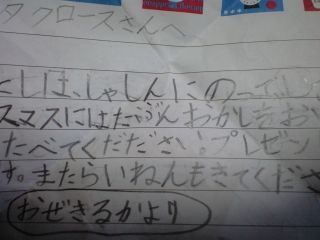 タクロースさんへ
しは、しゃしんにのって
スマスにはたぶんおかしをおい
たべてくだださい。プレゼン
す。またらいねんもきてくださ
おぜきるかより